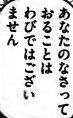 あなたのなさって
おることは
わびではござい
ません